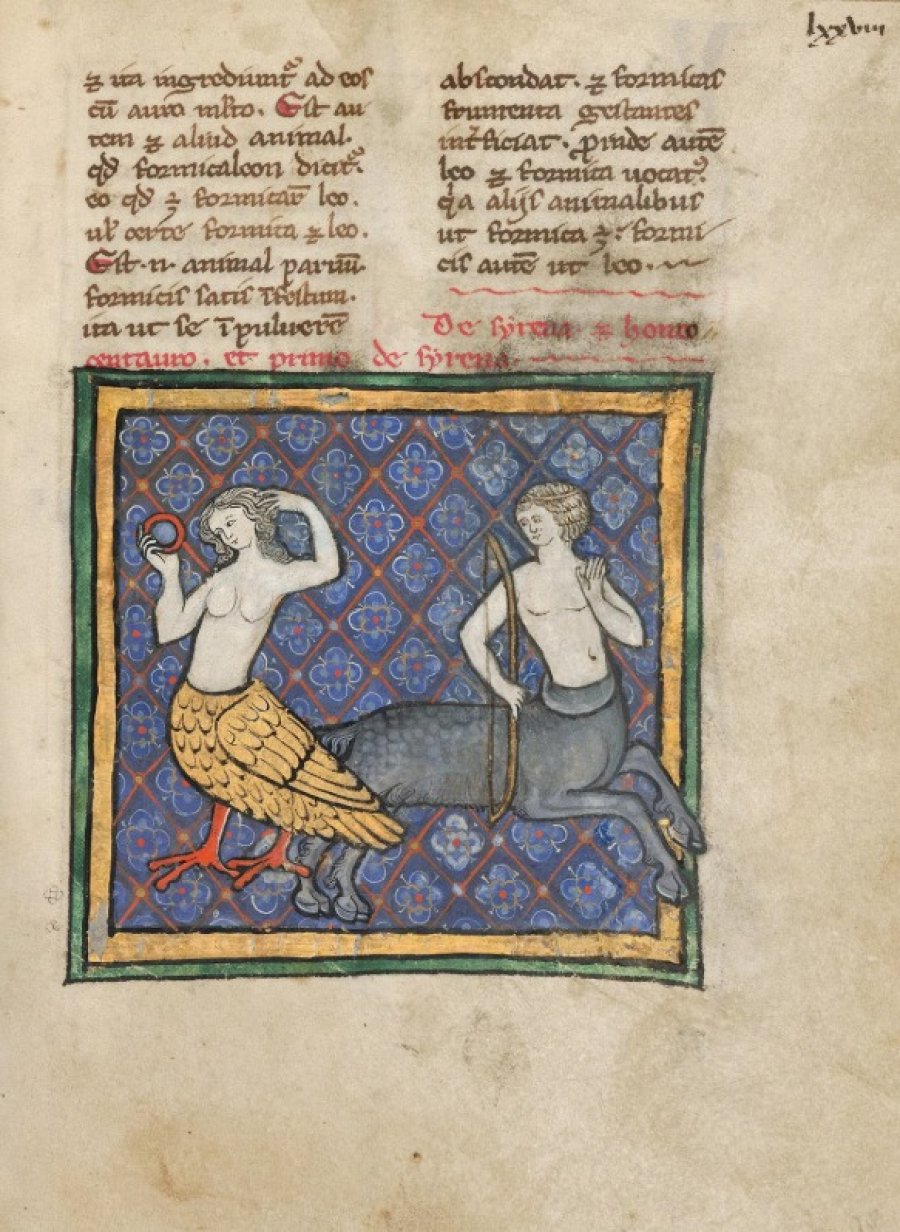 lxxviii
⁊ ita ingrediunt᷑ ad eos
cū auro mlto. Est au
tem ⁊ aliud animal.
qd̛ formicaleon dicit᷑.
eo qd̛ ÷ formicaꝝ leo.
ul̛ certe formica ⁊ leo.
Est .n. animal paruū.
formicis satis īfestum.
ita ut se ī puluerē
abscondat. ⁊ formicas
frumenta gestantes
int̛ficiat. proinde autē
leo ⁊ formica uocat᷑.
q̛a alijs animalibus
ut formica ÷. formi
cis autē ut leo.
De syrena ⁊ homo
centauro. et primo de syrena